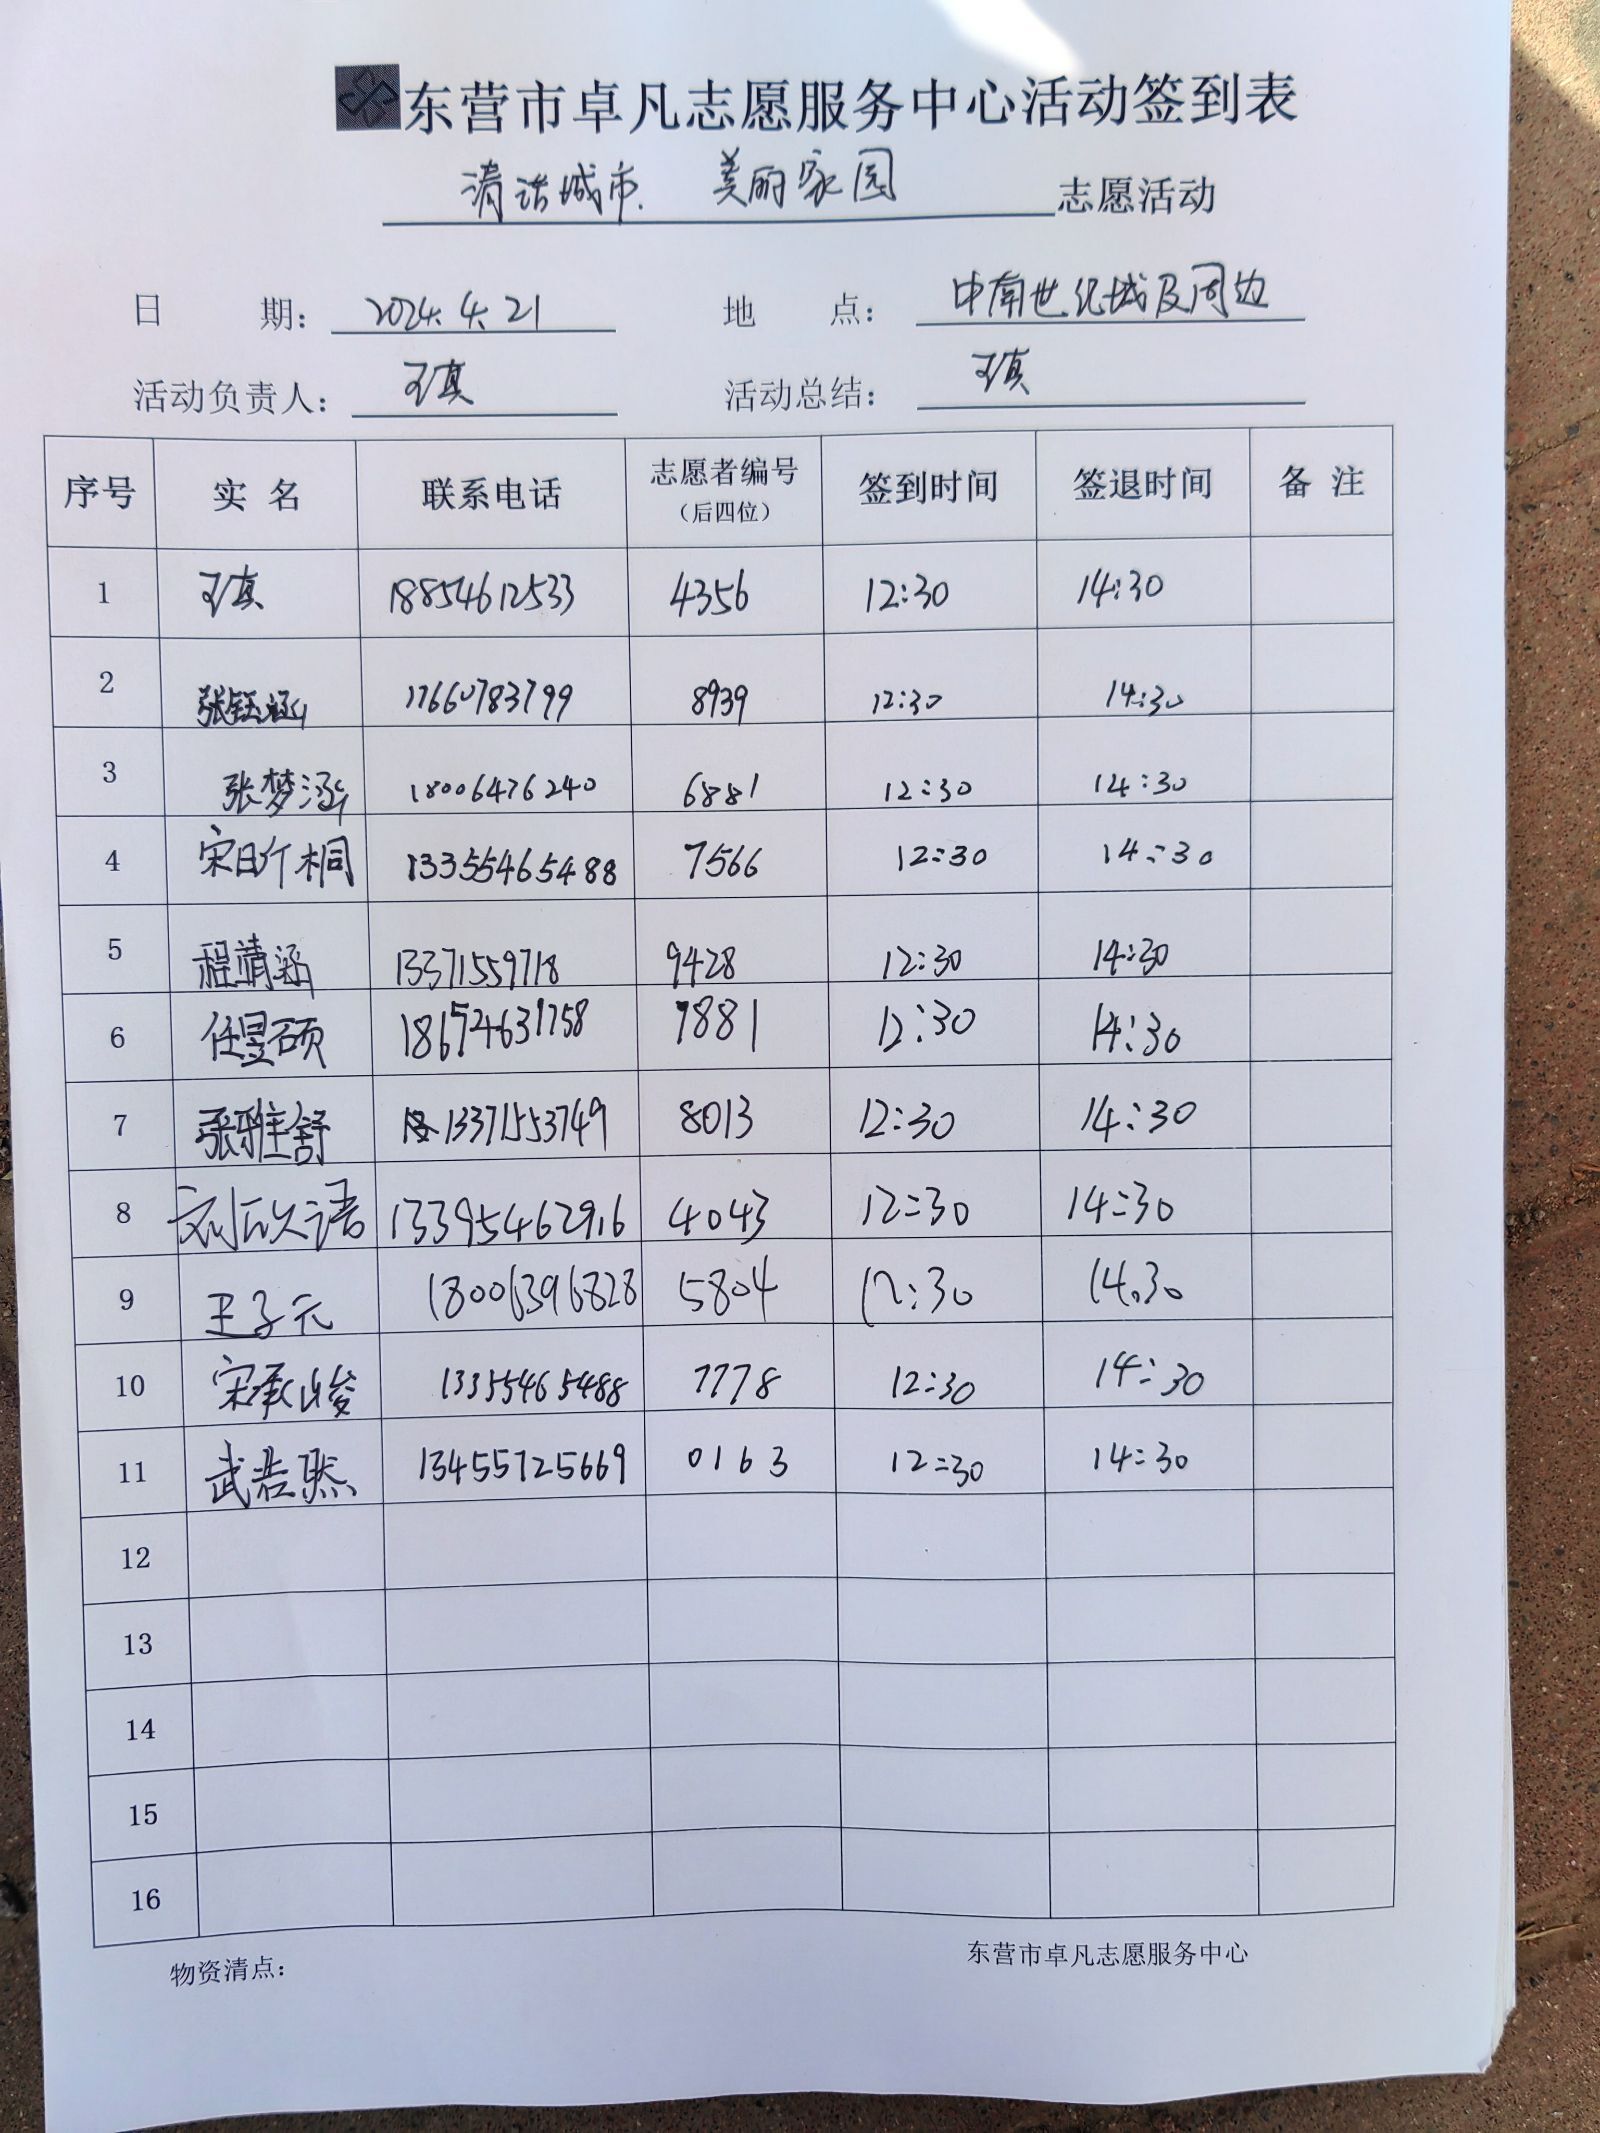 东营市卓凡志愿服务中心活动签到表
清洁城市. 美丽家园 志愿活动
日 期: 2024.4.21 地 点: 中南世纪城及周边
活动负责人: 王真 活动总结: 王真
序号 实 名 联系电话 志愿者编号 (后四位) 签到时间 签退时间 备 注
1 王真 18854612533 4356 12:30 14:30
2 张钰涵 17660783799 8939 12:30 14:30
3 张梦涵 18006476240 6881 12:30 14:30
4 宋昕桐 13355465488 7566 12:30 14:30
5 程靖涵 13371559718 9428 12:30 14:30
6 任昱硕 7881 12:30 14:30
7 张雅舒 13371553749 8013 12:30 14:30
8 刘欣语 13395462916 4043 12:30 14:30
9 王子元 18006396828 5804 12:30 14.30
10 宋承峻 13355465488 7778 12:30 14:30
11 武浩然 13455725669 0163 12:30 14:30
12
13
14
15
16
物资清点:
东营市卓凡志愿服务中心